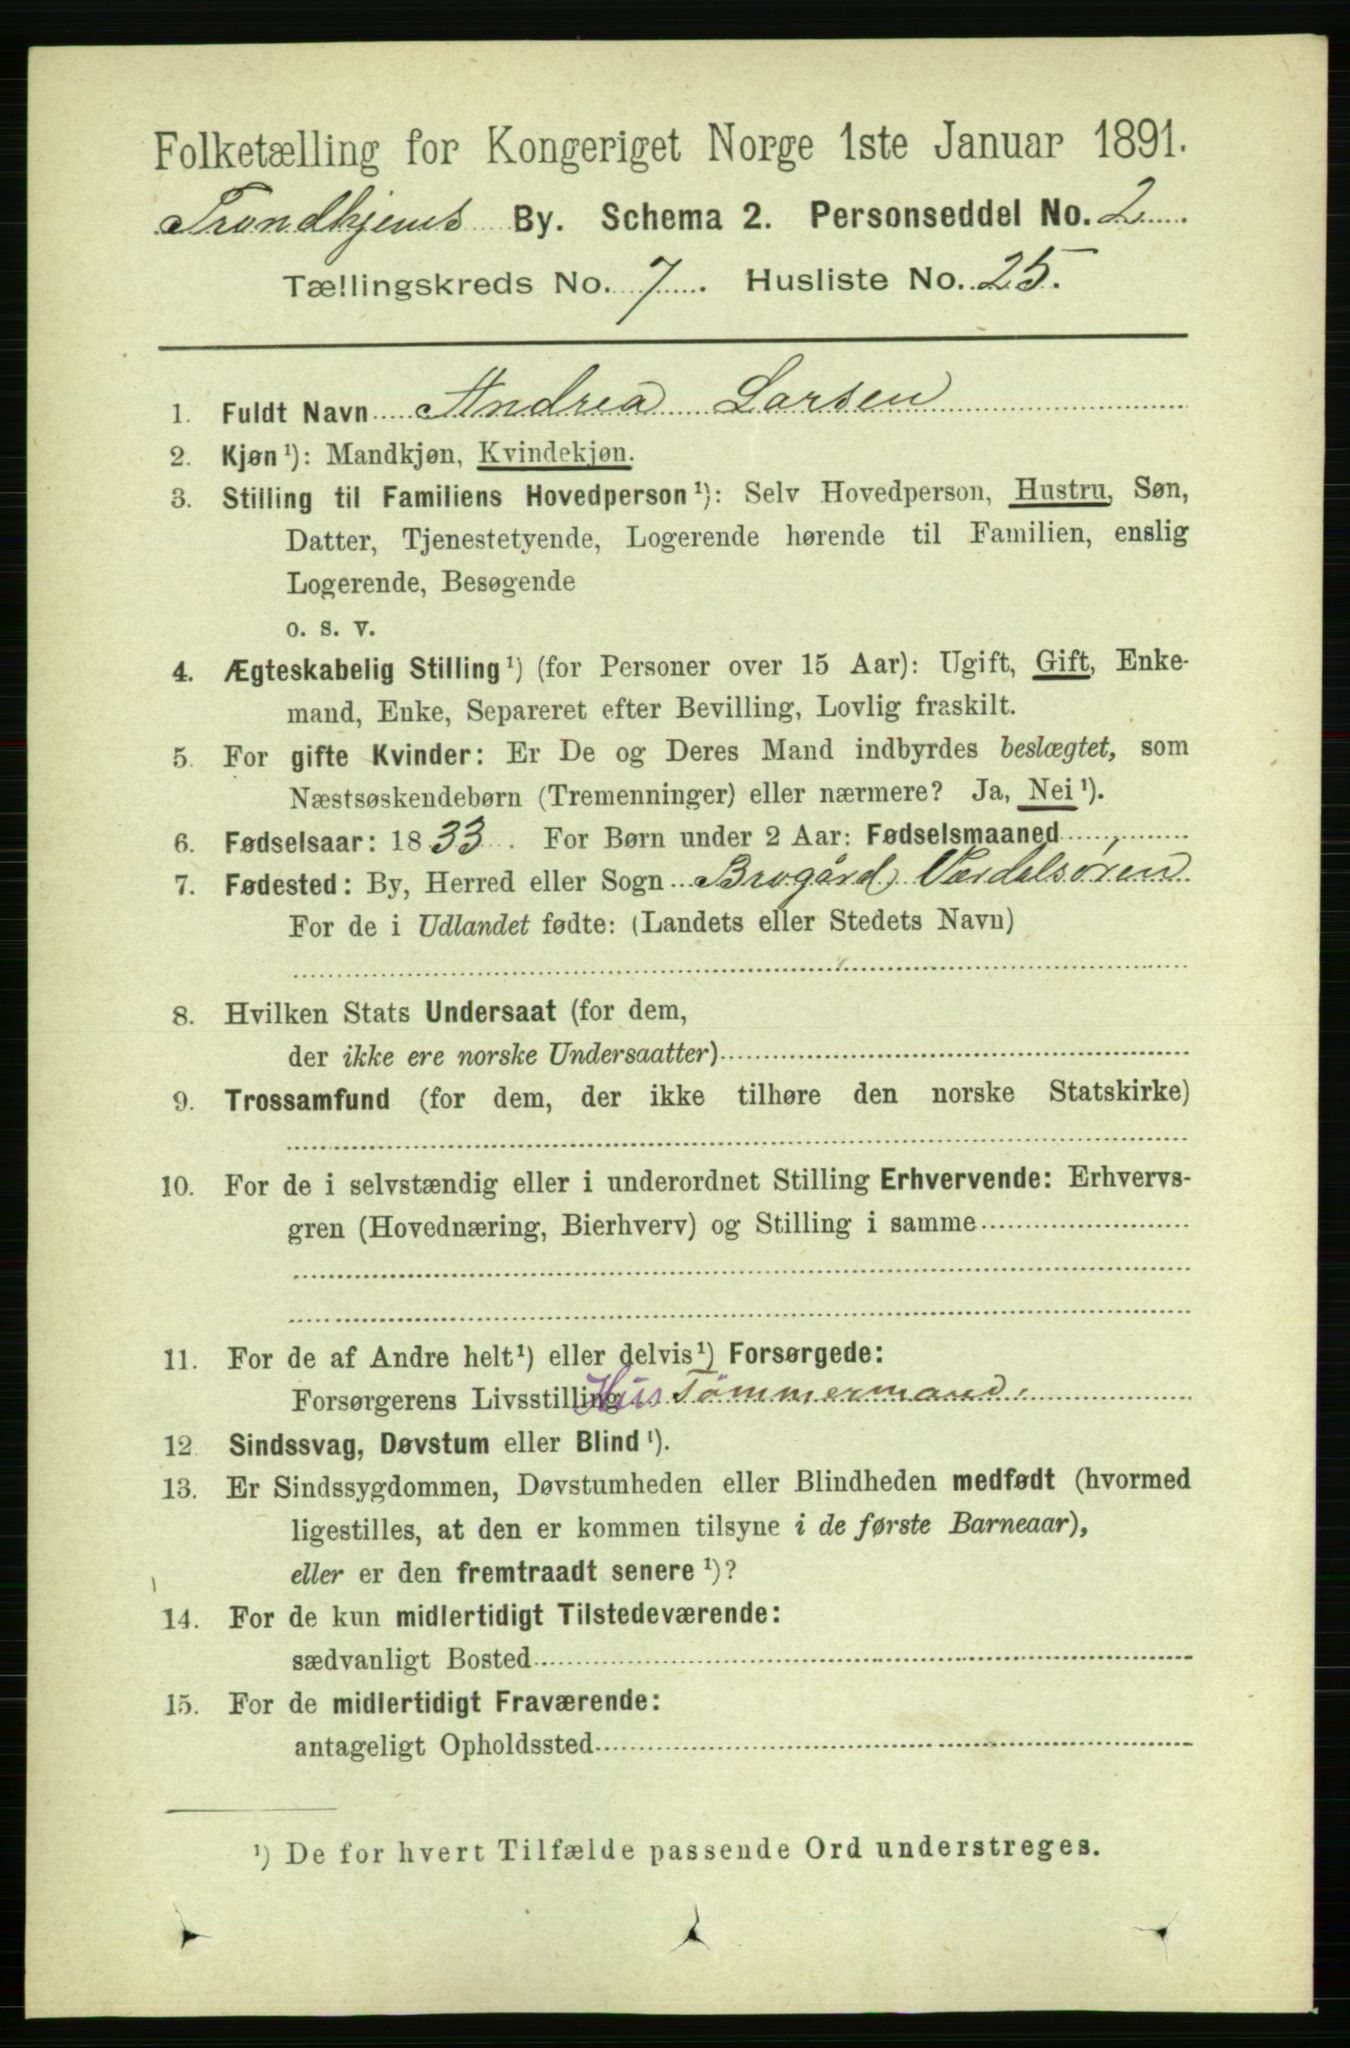 Folketælling for Kongeriget Norge 1ste Januar 1891.
Trondhjems By. Schema 2. Personseddel No. 2
Tællingskreds No. 7. Husliste No. 25.
1. Fuldt Navn Andrea Larsen
2. Kjøn¹): Mandkjøn, Kvindekjøn.
3. Stilling til Familiens Hovedperson¹): Selv Hovedperson, Hustru, Søn,
Datter, Tjenestetyende, Logerende hørende til Familien, enslig
Logerende, Besøgende
o. s. v.
4. Ægteskabelig Stilling¹) (for Personer over 15 Aar): Ugift, Gift, Enke-
mand, Enke, Separeret efter Bevilling, Lovlig fraskilt.
5. For gifte Kvinder: Er De og Deres Mand indbyrdes beslægtet, som
Næstsøskendebørn (Tremenninger) eller nærmere? Ja, Nei¹).
6. Fødselsaar: 1833. For Børn under 2 Aar: Fødselsmaaned
7. Fødested: By, Herred eller Sogn Brogård, Værdalsøren
For de i Udlandet fødte: (Landets eller Stedets Navn)
8. Hvilken Stats Undersaat (for dem,
der ikke ere norske Undersaatter)
9. Trossamfund (for dem, der ikke tilhøre den norske Statskirke)
10. For de i selvstændig eller i underordnet Stilling Erhvervende: Erhvervs-
gren (Hovednæring, Bierhverv) og Stilling i samme
11. For de af Andre helt¹) eller delvis¹) Forsørgede:
Forsørgerens Livsstilling Hus Tømmermand.
12 Sindssvag, Døvstum eller Blind¹).
13. Er Sindssygdommen, Døvstumheden eller Blindheden medfødt (hvormed
ligestilles, at den er kommen tilsyne i de første Barneaar),
eller er den fremtraadt senere¹)?
14. For de kun midlertidigt Tilstedeværende:
sædvanligt Bosted
15. For de midlertidigt Fraværende:
antageligt Opholdssted
¹) De for hvert Tilfælde passende Ord understreges.